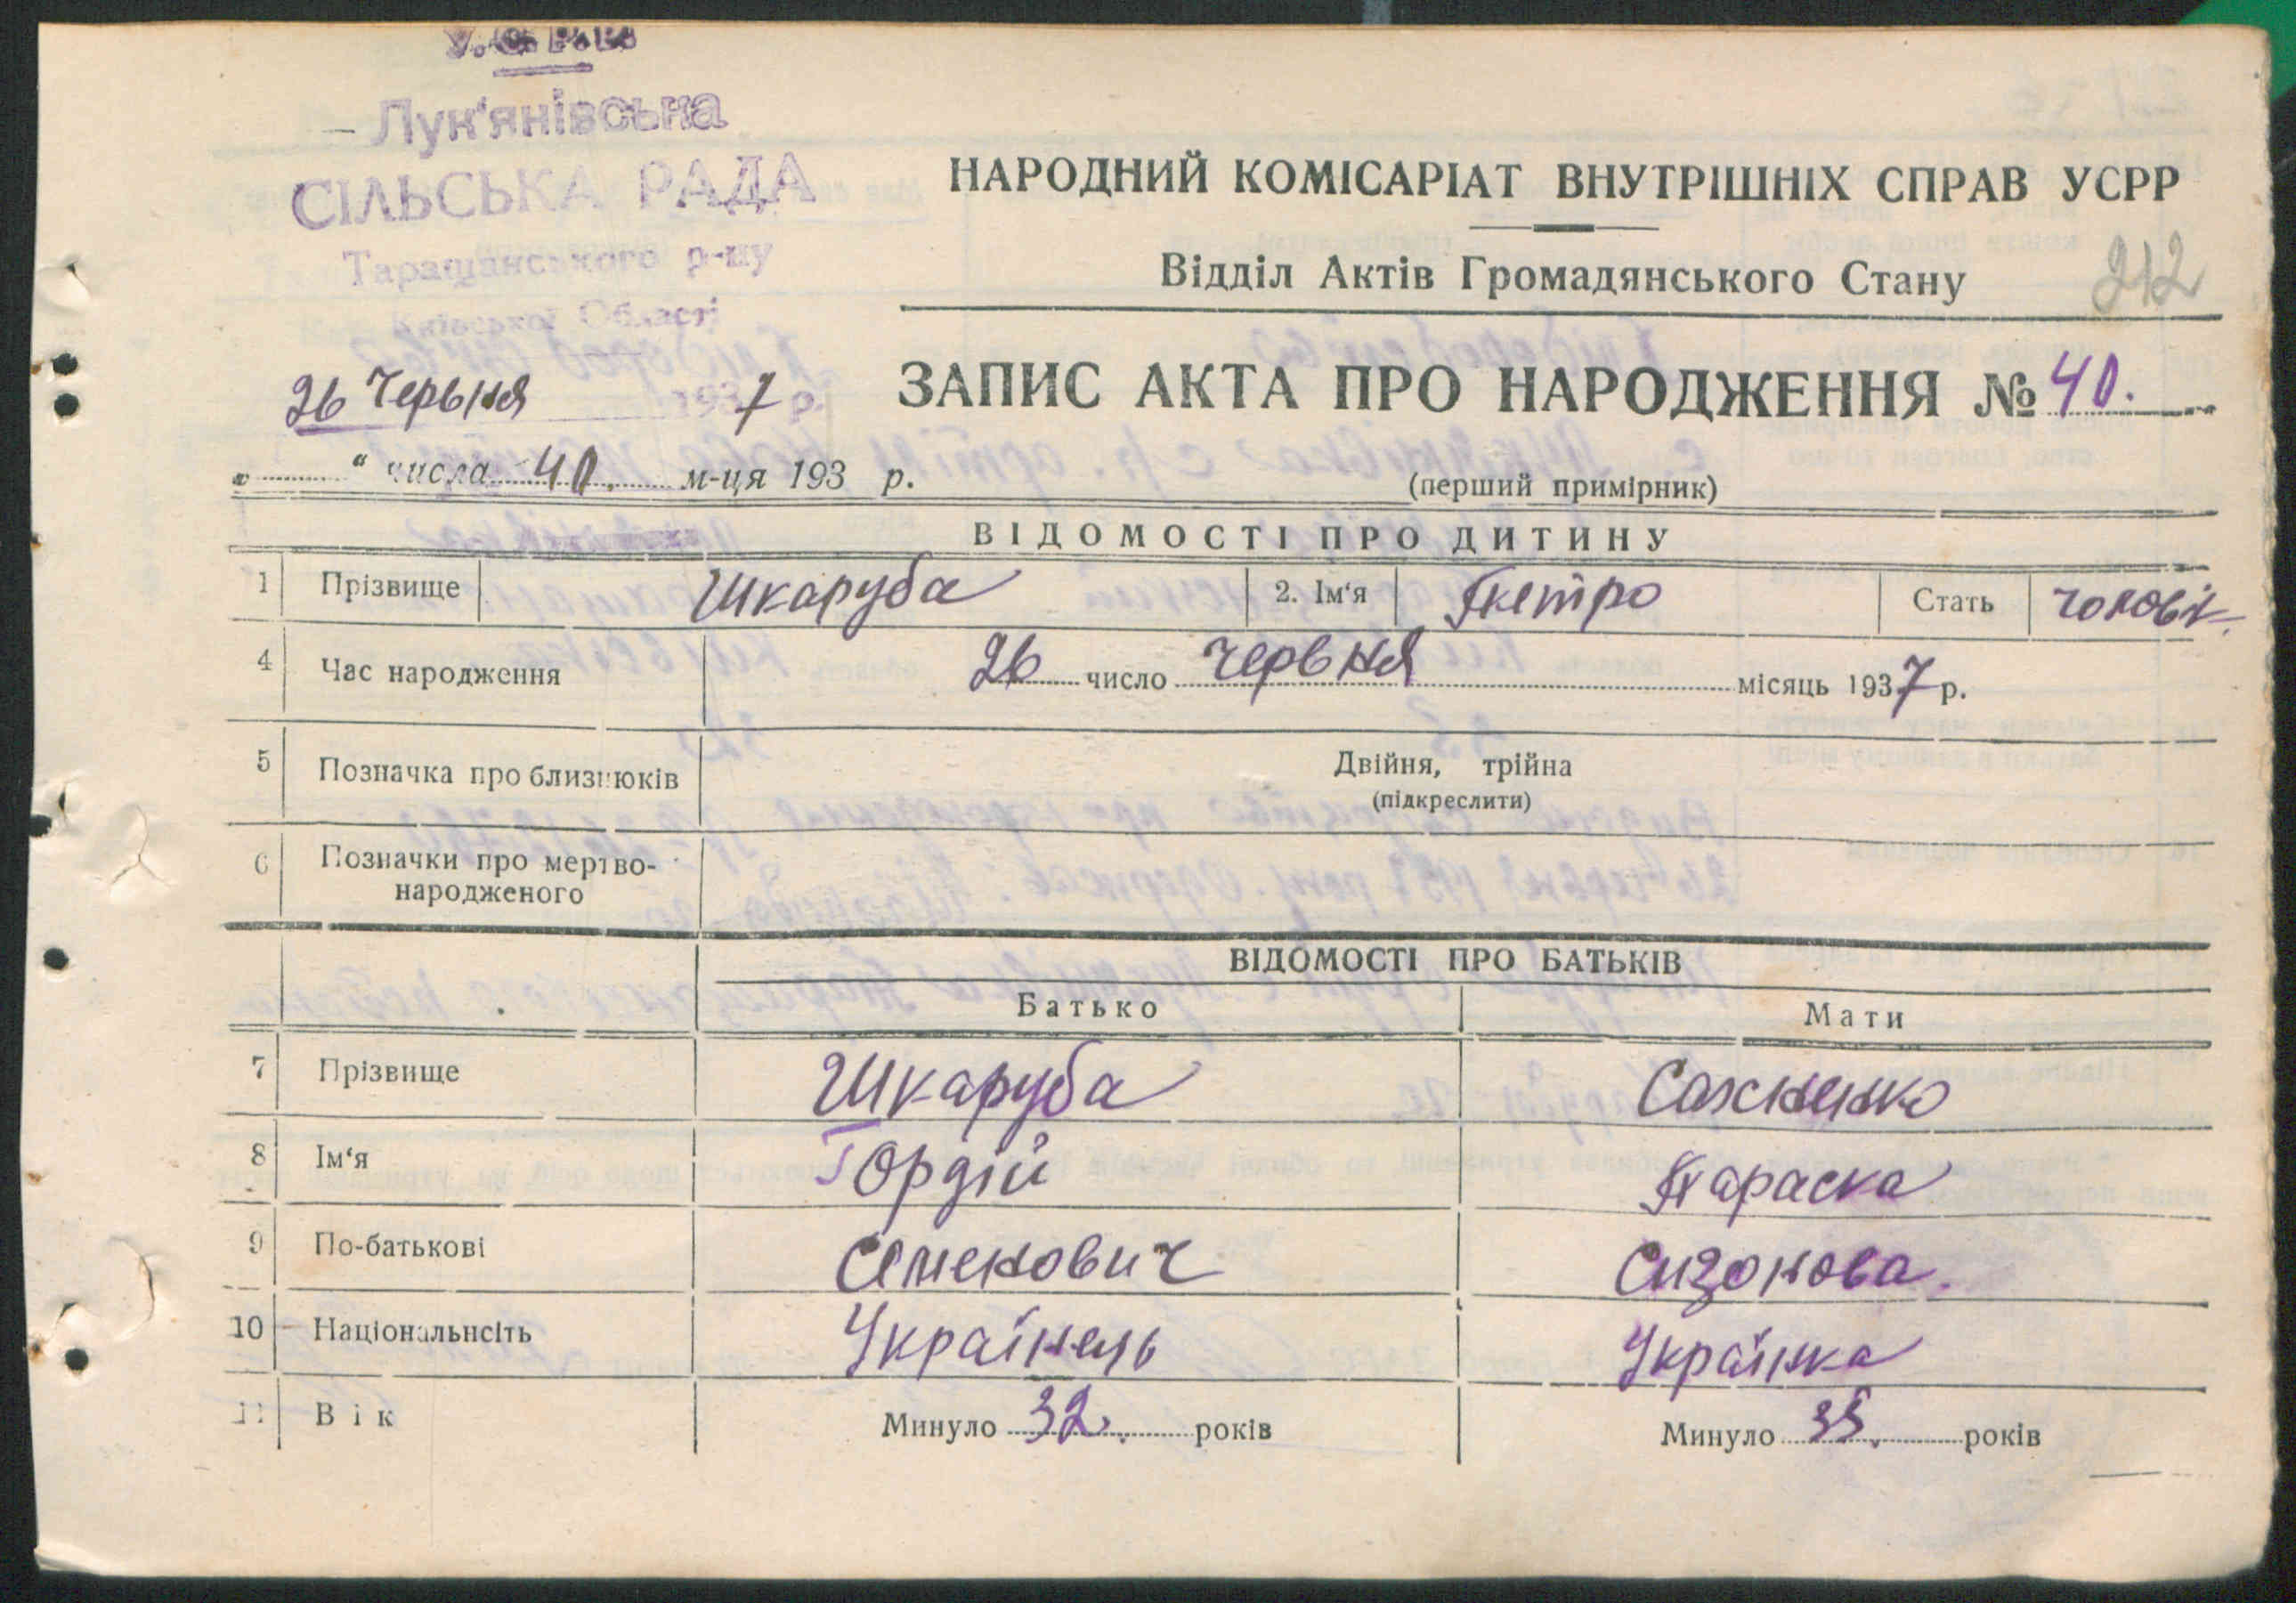 У.С.Р.Р.
Лук'янівська
СІЛЬСЬКА РАДА
Таращанського р-ну
Київської Області
26 Червня 1937 р.
НАРОДНИЙ КОМІСАРІАТ ВНУТРІШНІХ СПРАВ УСРР
Відділ Актів Громадянського Стану
212
ЗАПИС АКТА ПРО НАРОДЖЕННЯ № 40.
„ “ числа 40. м-ця 193 р.
(перший примірник)
ВІДОМОСТІ ПРО ДИТИНУ
1 Прізвище Шкаруба 2. Ім'я Петро Стать чоловік.
4 Час народження 26 число червня місяць 1937 р.
5 Позначка про близнюків Двійня, трійна
(підкреслити)
6 Позначки про мертво-
народженого
ВІДОМОСТІ ПРО БАТЬКІВ
Батько Мати
7 Прізвище Шкаруба Сахненко
8 Ім'я Гордій Параска
9 По-батькові Семенович Сизонова.
10 Національнсіть Українець Українка
11 Вік Минуло 32. років Минуло 35. років